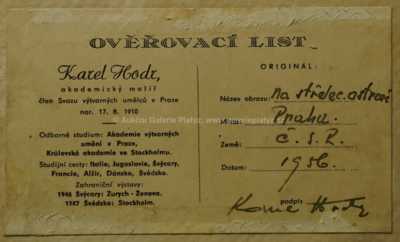 OVĚŘOVACÍ LIST
Karel Hodr,
akademický malíř
člen Svazu výtvarných umělců v Praze
nar. 17. 8. 1910
Odborné studium: Akademie výtvarných
umění v Praze,
Královská akademie ve Stockholmu.
Studijní cesty: Italie, Jugoslavie, Švýcary,
Francie, Alžír, Dánsko, Švédsko.
Zahraniční výstavy:
1946 Švýcary: Zurych - Ženeva.
1947 Švédsko: Stockholm.
ORIGINÁL:
Název obrazu: Na střelec. ostrově
Místo: Praha.
Země: Č. S. R.
Datum: 1956.
podpis
Karel Hodr